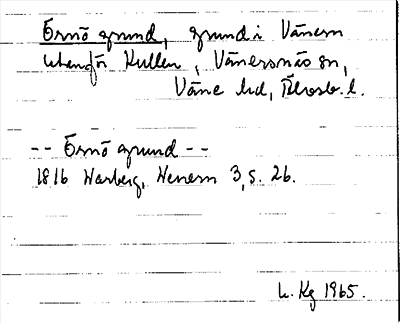 Örnö grund, grund i Vänern
utanför Kullen, Vänersnäs sn,
Väne hd, Älvsb. l.
-- Örnö grund --
1816 Warberg, Wenern 3, s. 26.
L. Kg 1965.